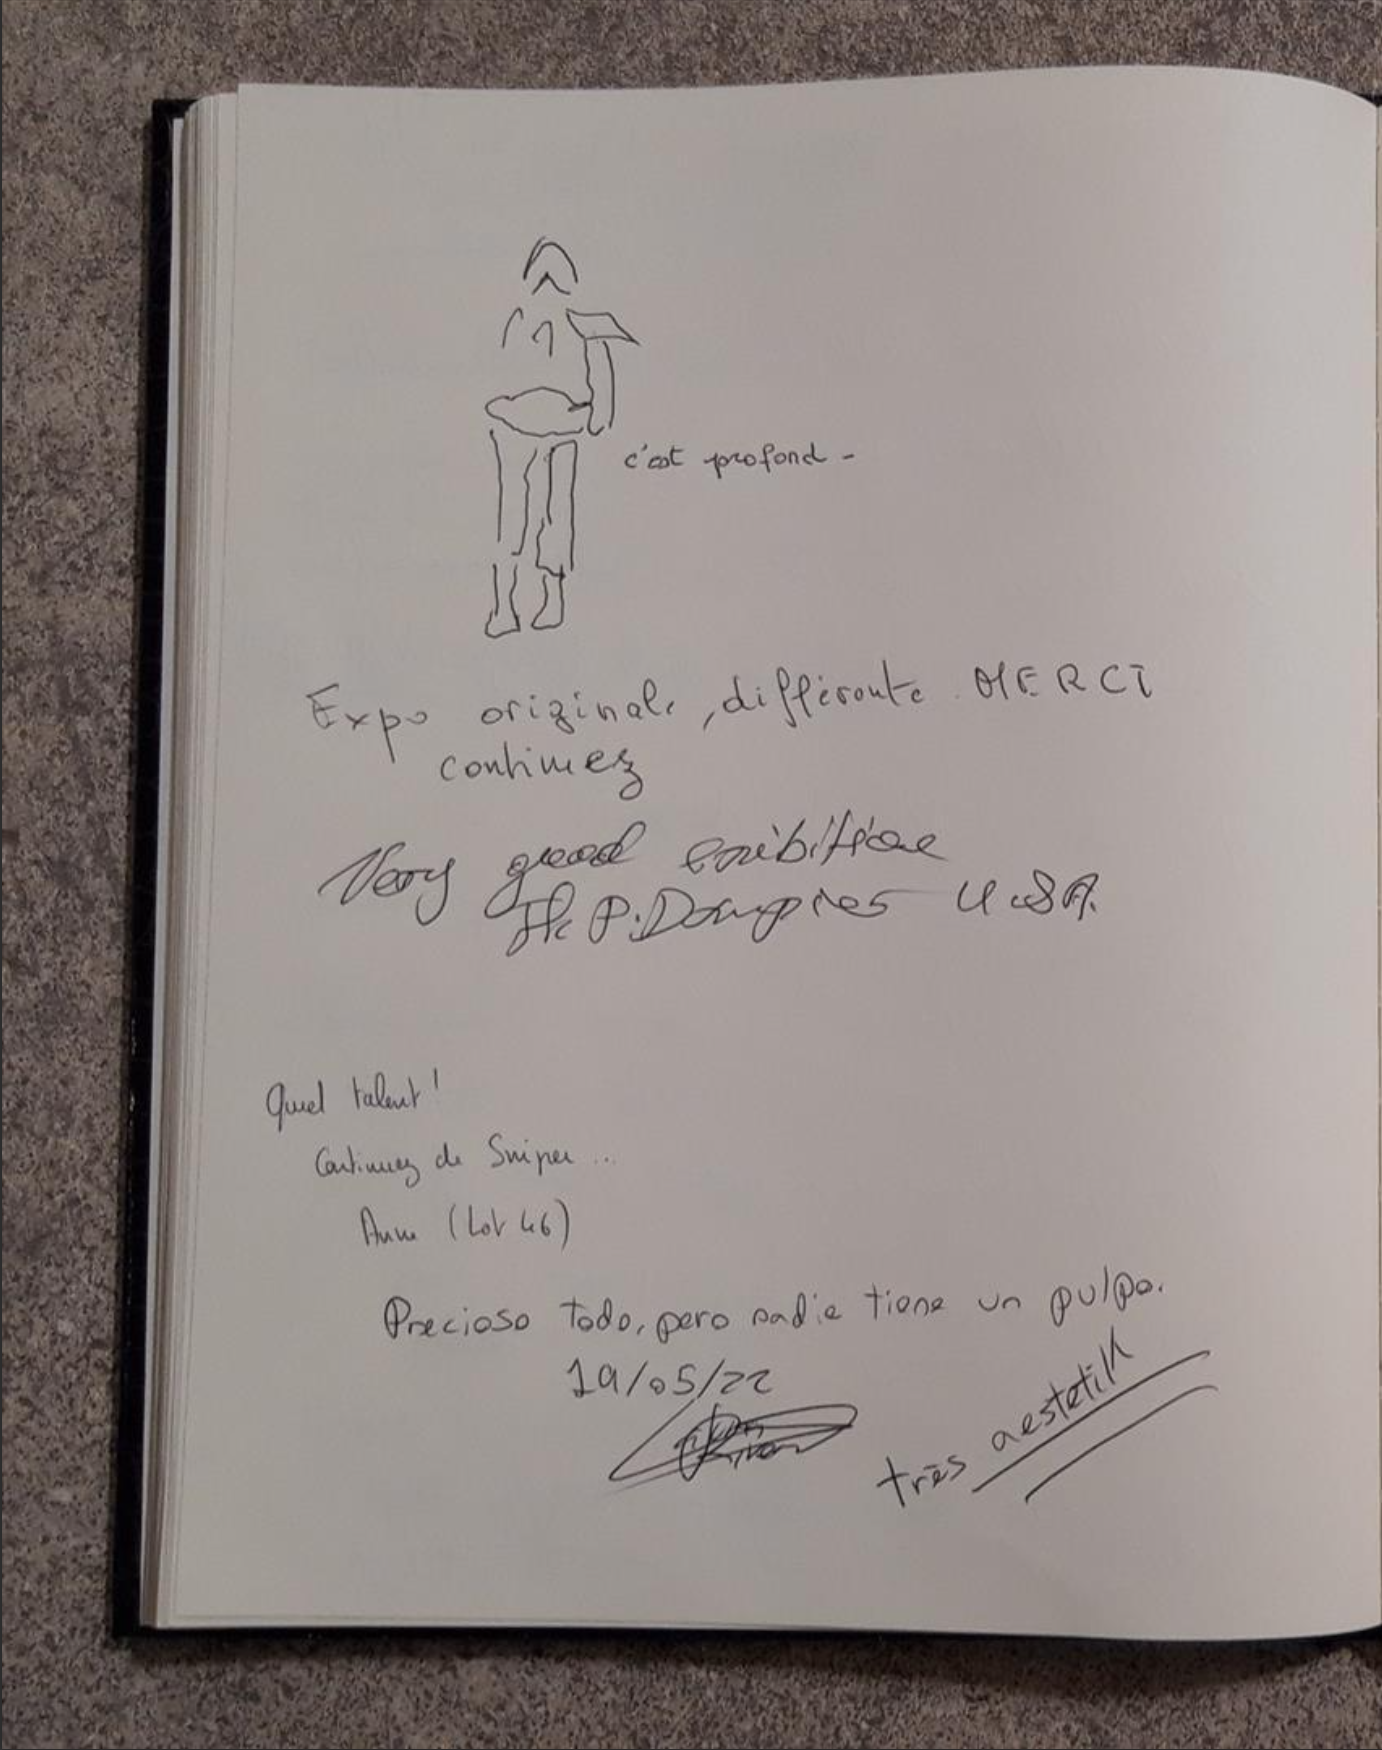 c'est profond -
Expo originale, différente MERCI
continuez
Very good exibition
P. Dampies U.S.A.
Quel talent !
Continuez de Sniper ...
Anne (Lot 46)
Precioso todo, pero nadie tiene un pulpo.
19/05/22
très aestetik